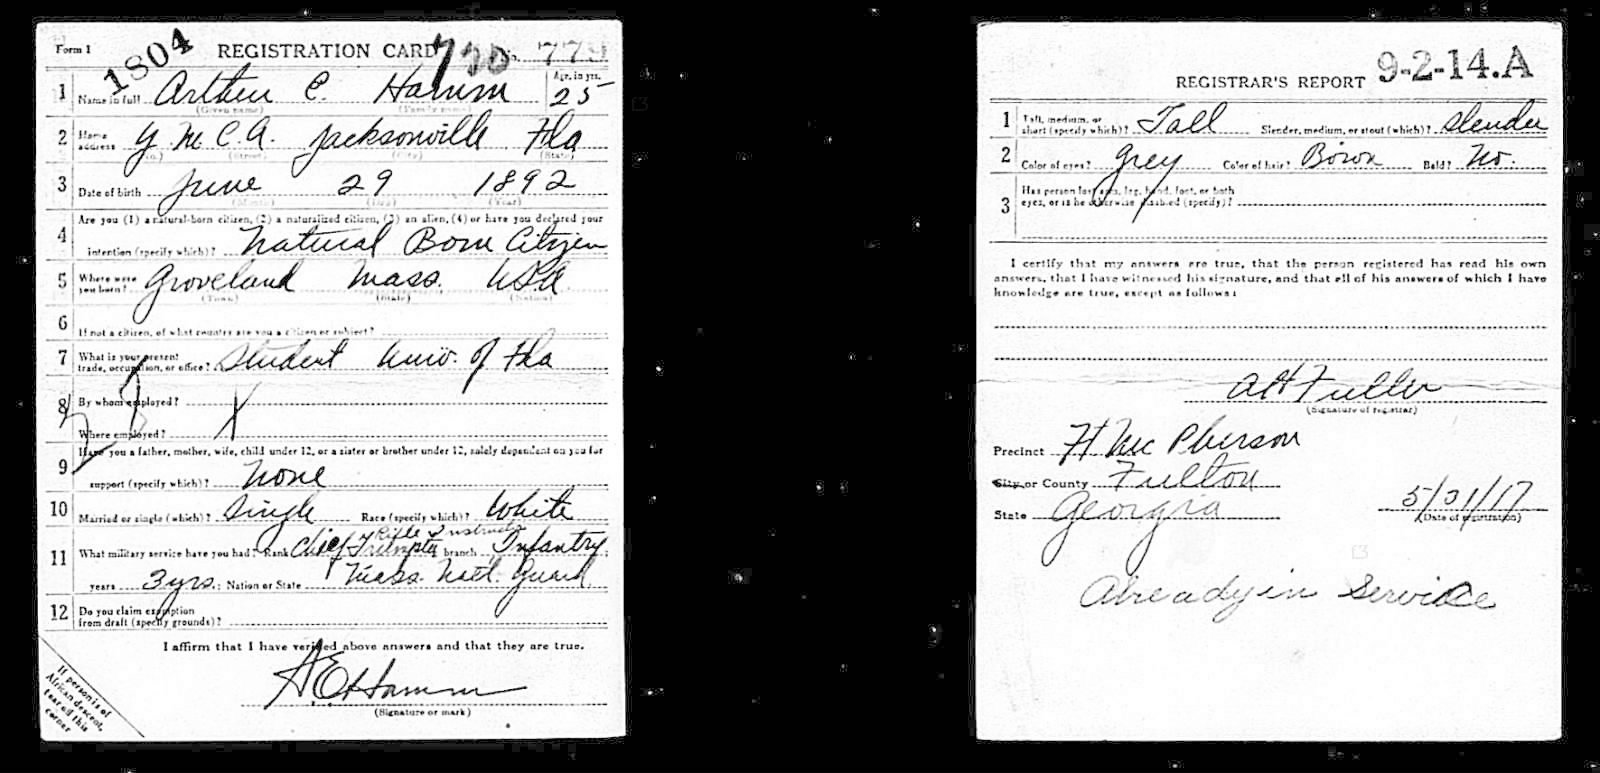 Form 1
1804
REGISTRATION CARD No. 779
1 Name in full Arthur E. Hamm Age, in yrs. 25
(Given name) (Family name)
2 Home address Y.M.C.A. Jacksonville Fla
(No.) (Street) (City) (State)
3 Date of birth June 29 1892
(Month) (Day) (Year)
Are you (1) a natural-born citizen, (2) a naturalized citizen, (3) an alien, (4) or have you declared your
4 intention (specify which)? Natural Born Citizen
5 Where were you born? Groveland Mass. USA
(Town) (State) (Nation)
6 If not a citizen, of what country are you a citizen or subject?
7 What is your present trade, occupation, or office? Student Univ. of Fla
8 By whom employed?
Where employed? X
9 Have you a father, mother, wife, child under 12, or a sister or brother under 12, solely dependent on you for
support (specify which)? None
10 Married or single (which)? Single Race (specify which)? White
Rifle Instructor
11 What military service have you had? Rank Chief Trumpter branch Infantry;
years 3 yrs.; Nation or State Mass. Natl. Guard
12 Do you claim exemption from draft (specify grounds)?
I affirm that I have verified above answers and that they are true.
A E Hamm
(Signature or mark)
If person is of
African descent,
tear off this
corner
9-2-14.A
REGISTRAR'S REPORT
1 Tall, medium, or short (specify which)? Tall Slender, medium, or stout (which)? Slender
2 Color of eyes? Grey Color of hair? Brown Bald? No.
3 Has person lost arm, leg, hand, foot, or both
eyes, or is he otherwise disabled (specify)?
I certify that my answers are true, that the person registered has read his own
answers, that I have witnessed his signature, and that all of his answers of which I have
knowledge are true, except as follows:
A H Fuller
(Signature of registrar)
Precinct Ft McPherson
City or County Fulton
State Georgia 5/31/17
(Date of registration)
Already in Service